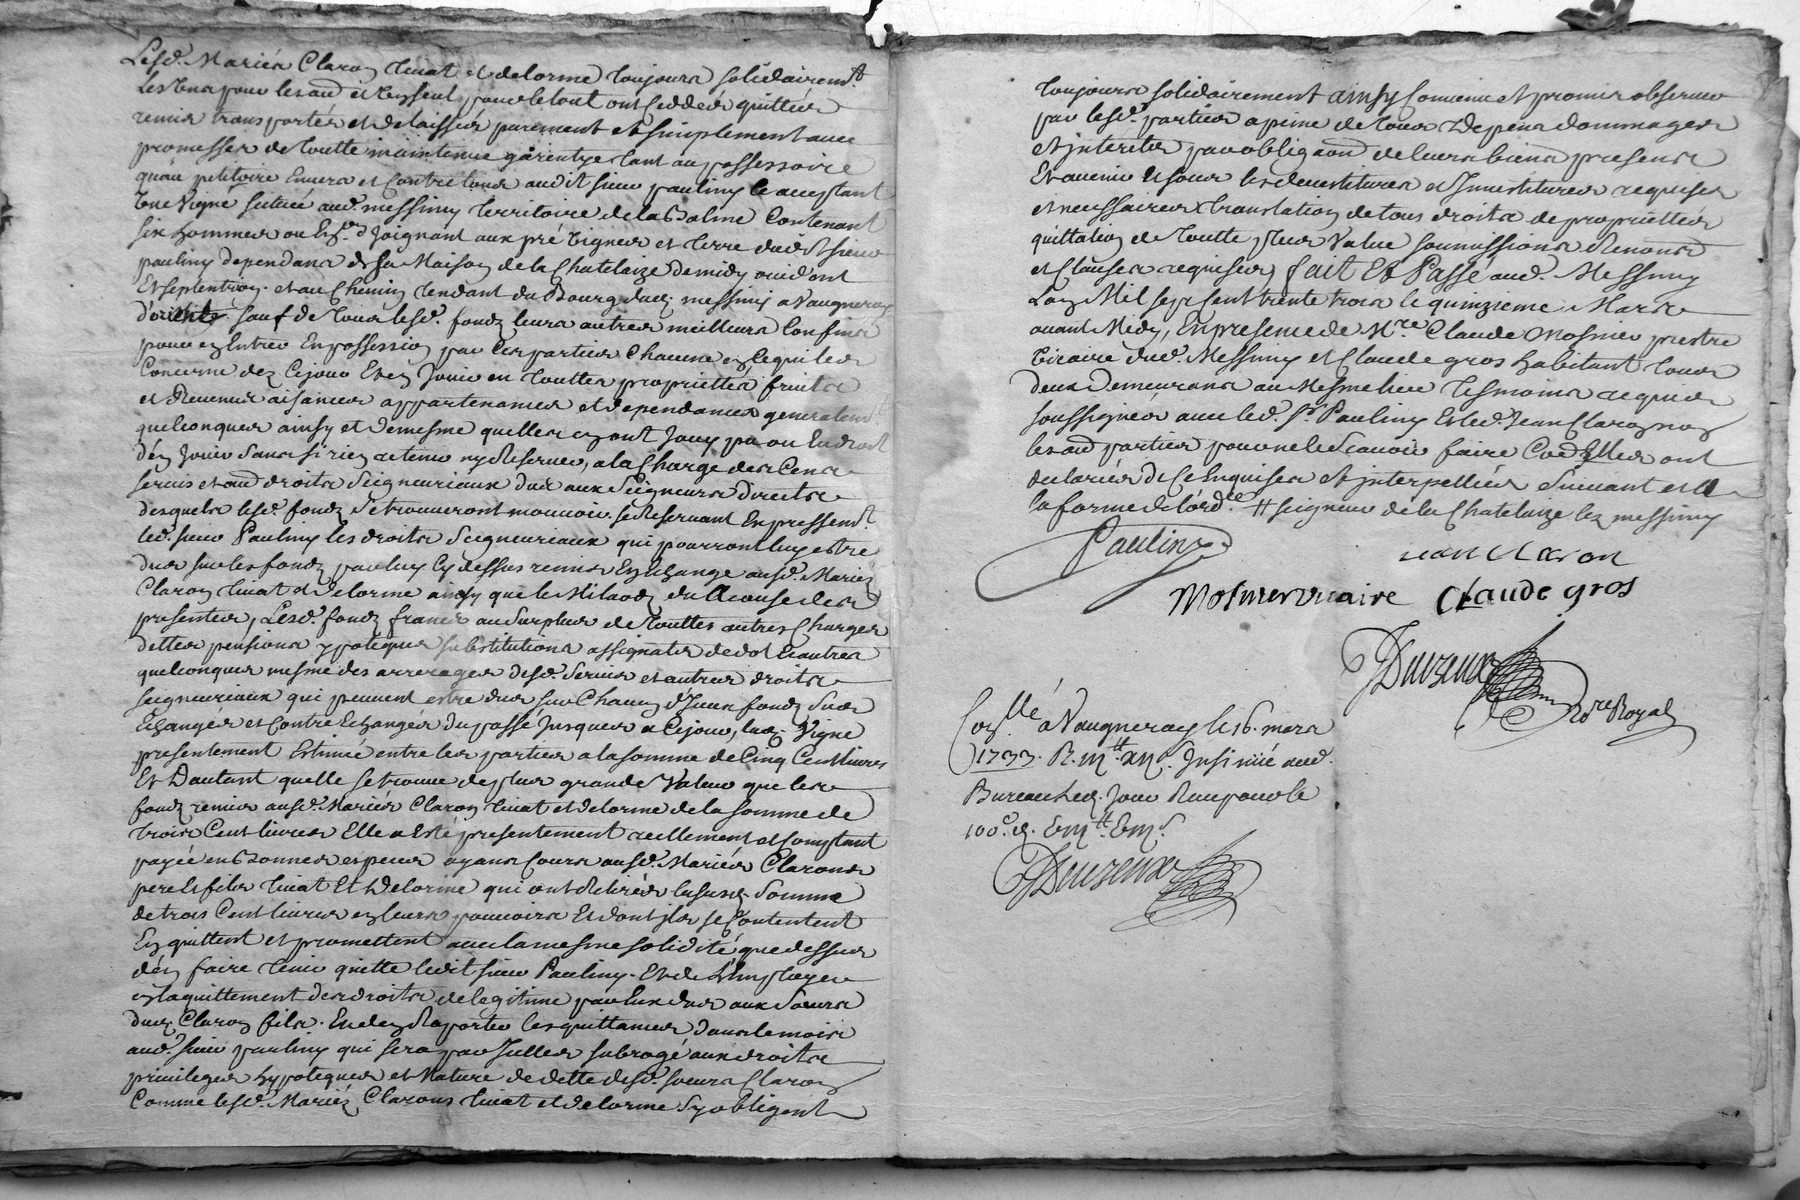 Lesd. Mariés Claron Vinat et delorme toujours solidairem.t
les uns pour les au.es et un seul pour le tout ont ceddés quittés
remis transportés et delaissés purement et simplement avec
promesses de toutte maintenue garentye tant au possessoire
qu'au petitoire Envers et Contre tous audit sieur pauliny le aceptant
Une Vigne scituée aud. messimy territoire de la balme Contenant
six hommes ou En.on Joignant aux pré Vignes et terre dudit sieur
pauliny dependans de sa Maison de la Chatelaize de midy occident
Et septentrion et au Chemin tendant du Bourg dud. messimy a Vaugneray
d'orient sauf de tous lesd. fondz leurs autres meilleurs Confins
pour en Entrer En possession par les parties Chacune en ce qui les
Concerne dez Cejour Et en Jouir en touttes proprietés fruits
et Revenus aisances appartenances et dependances generalem.t
quelconques ainsy et de mesme quelles en ont Jouy pu ou En droit
d'en Jouir sans si rien retenir ny Reserver, a la Charge des Cens
servis et au.es droits Seigneuriaux dus aux Seigneurs directs
desquels lesd. fondz se trouveront mouvoir se Reservant Expressem.t
led. sieur Pauliny les droits Seigneuriaux qui pourront luy estre
dus sur les fondz par luy cy dessus remis En Echange ausd. Mariez
Claron Vinat et delorme ainsy que le Milaod du a Cause des
presentes, Lesd. fondz francs au surplus de touttes autres Charges
dettes pensions ypoteques substitutions assignats de dot Et autres
quelconques mesme des arrerages desd. Servis et autres droits
seigneuriaux qui peuvent estre dus sur Chacun d'Iceux fondz sus
Echangés et Contre Echangés du passé Jusques a Cejour, lad. Vigne
presentement Estimée entre les parties a la somme de Cinq Cent livres
Et D'autant quelle se trouve de plus grande Valeur que les
fondz remis ausd. Mariés Claron Vinat et delorme de la somme de
trois Cent livres Elle a Esté presentement réellement et Comptant
payée en bonnes especes ayans Cours ausd. Mariés Clarons
pere et fils Vinat Et Delorme qui ont Retirés la susd. Somme
de trois Cent livres en leurs pouvoirs Et dont ils se Contentent
En quittent et promettent avec la mesme solidité que dessus
d'en faire tenir quitte ledit sieur Pauliny. Et de L'Employer
en l'aquittement des droits de legitime par Eux dus aux Soeurs
dud. Claron fils. En de En Raporter les quittances dans le mois
aud. sieur pauliny qui sera par Icelles subrogé aux droits
privileges hypoteques et Nature de dette desd. soeurs Claron
Comme lesd. Mariéz Clarons Vinat et delorme s'y obligent
toujours solidairement ainsy Convenu et promis observer
par lesd. parties a peine de tous Depens dommages
et interets par obligaon de leurs biens presens
Et avenir Et sous les devestitures et Investitures requises
et necessaires translation de tous droits de proprietés
quittation de toutte plus Value soumissions Renons.
et Clauses requises, fait Et Passé aud. Messimy
L'an Mil sept cent trente trois le quinzieme Mars
avant Midy, En presence de M.re Claude Mosnier prestre
Vicaire dud. Messimy et Claude gros habitant tous
deux Demeurans au Mesme lieu tesmoins requis
soussignés avec led. S.r Pauliny Et led. Jean Claron non
les au.es parties pour ne le Scavoir faire Co.e Elles ont
declarés de Ce Enquises et interpellées suivant et a
la forme de l'ord.ce # seigneur de la Chatelaize lez messimy
Pauliny
jean claron
Mosnier vicaire Claude gros
Duvzeux
No.re Royal
Con.llé a Vaugneray le 16. mars
1733. R.
Bureau led. Jour Reçu pour le
100.e d.
Duvzeux